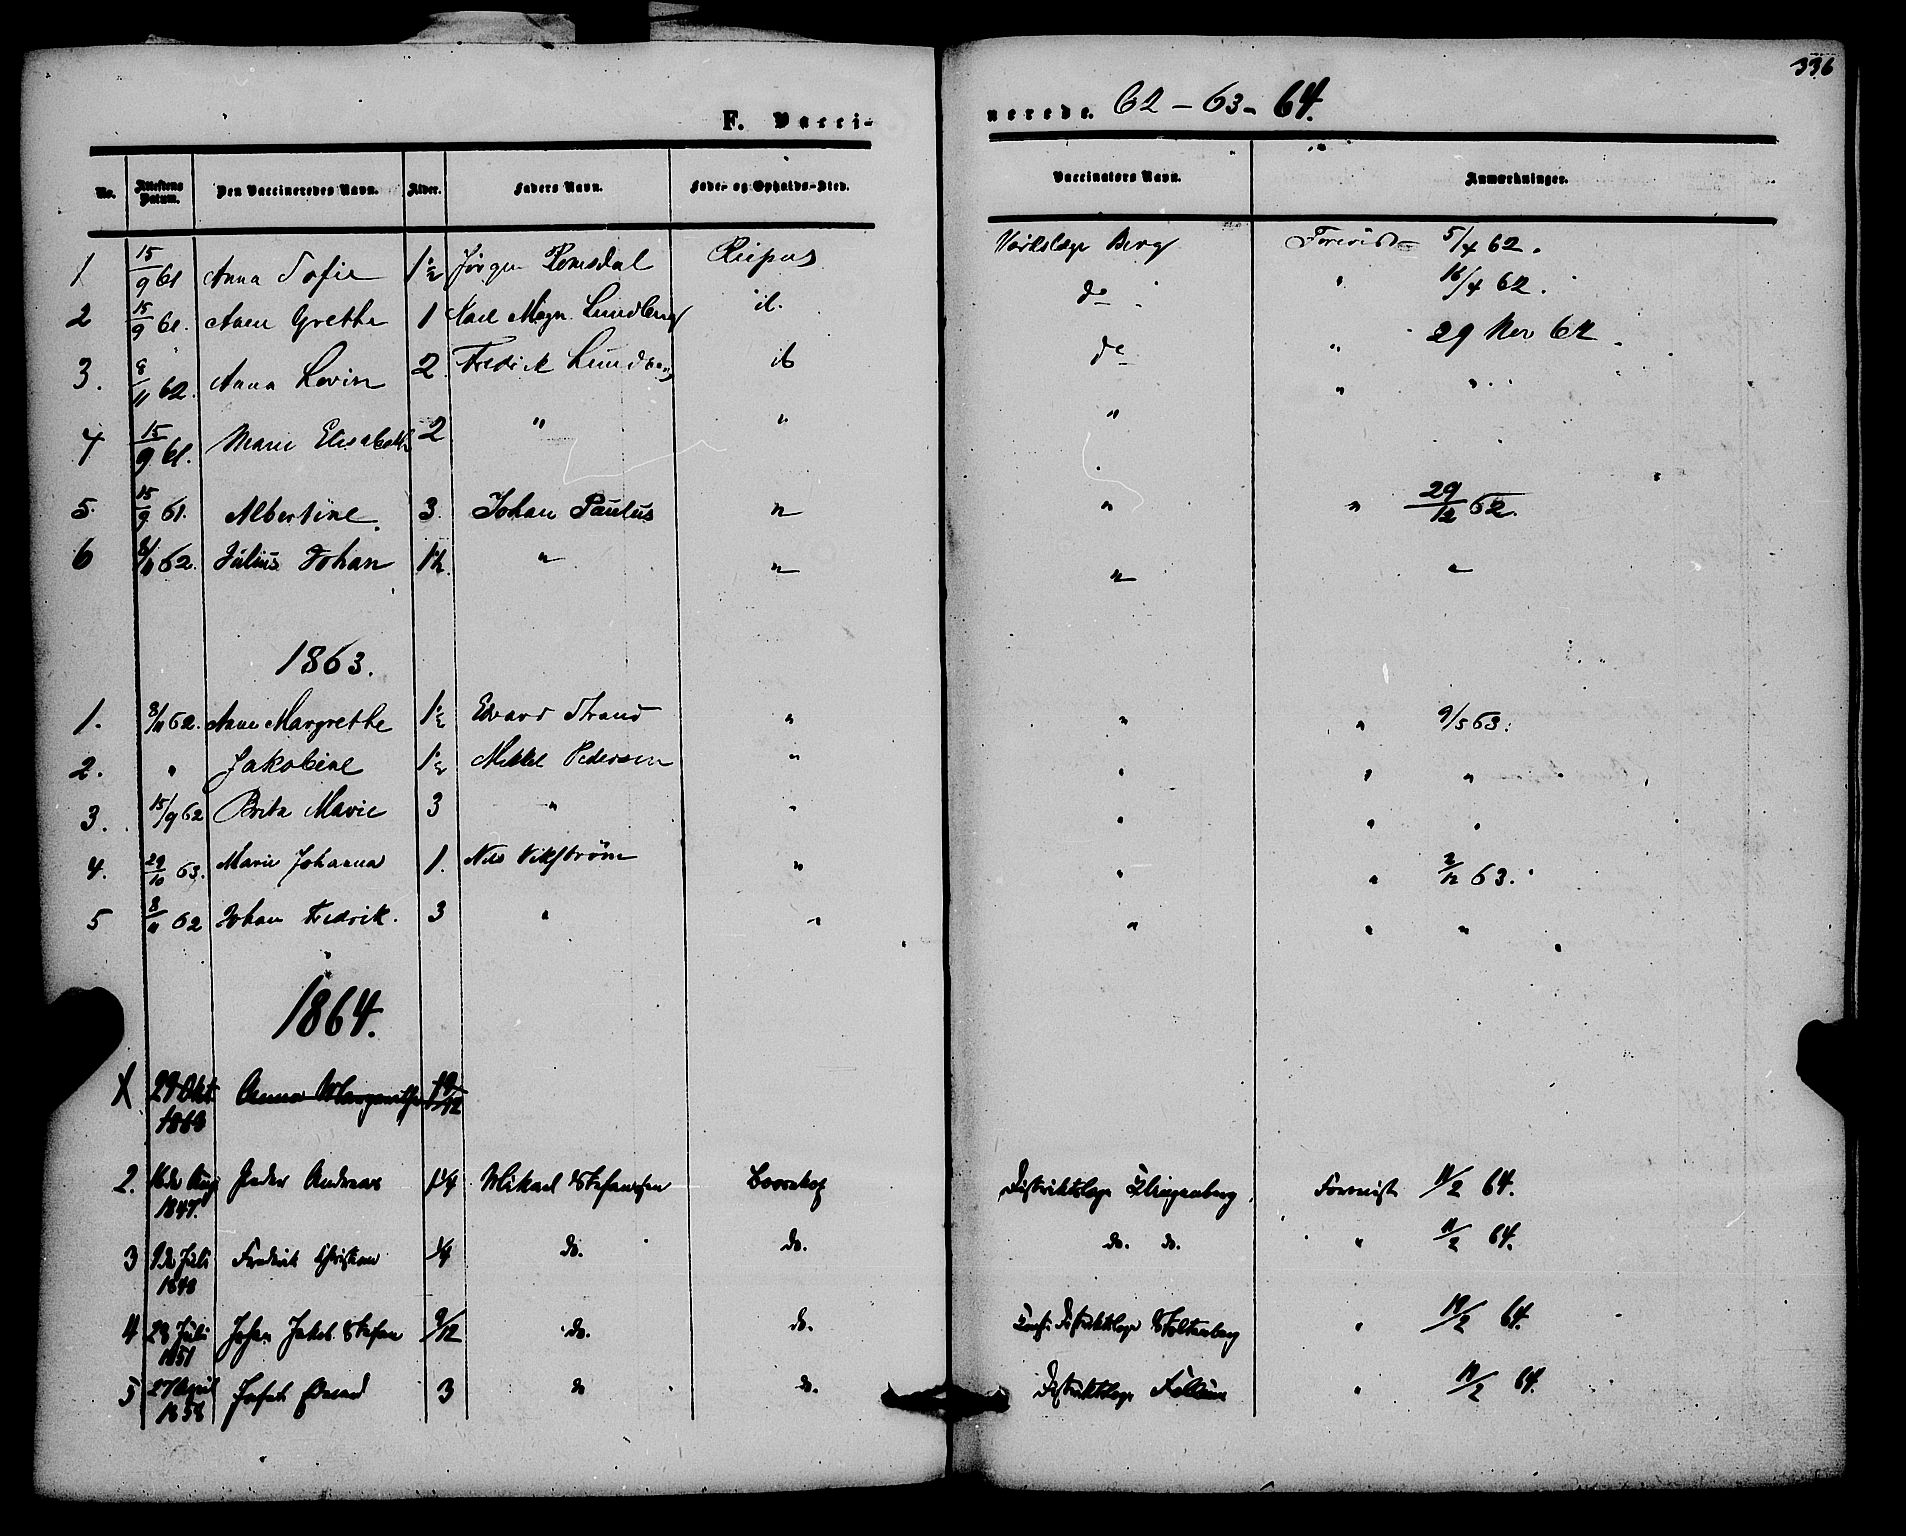 336
F. Vacci- nerede. 62 - 63 - 64.
No. Attestens Datum. Den Vaccineredes Navn. Alder. Faders Navn. Føde- og Opholds-Sted. Vaccinateurs Navn. Anmærkninger.
1 15/9 61 Anna Sofie 1½ Jørgen Romsdal Riepas Værkslæge Berg Forevist 5/4 62.
2 15/9 61. Anen Grethe 1 Karl Magn. Lundberg id. do " 16/4 62.
3. 8/11 62. Anna Lovise 2 Fredrik Lundberg id do " 29 Nov 62
4 15/9 61. Marie Elisabeth 2 " " " " "
5. 15/9 61. Albertine 3 Johan Paulus " " " 29/12 62.
6 8/11 62. Julius Johan 1½ " " " "
1863.
1. 8/11 62. Anne Margrethe 1½ Edvard Strand " " " 9/5 63.
2. " Jakobine 1½ Mikkel Pedersen " " " "
3. 15/9 62 Brita Marie 3 " " " " "
4. 29/10 63. Marie Johanna 1. Nils Vikstrøm " " " 2/12 63.
5 8/11 62 Johan Fredrik. 3 " " " " "
1864.
1 29 Okt 1863 Anna Margarethe 12
2. 16de Aug 1847. Peder Andreas 1/4 Mikael Stefansen Bossekop Distriktslæge Klingenberg Forevist 11/2 64.
3 9de Juli 1848 Fredrik Christian 1/4 do. do. do. do. " 11/2 64.
4 28 Juli 1851 Johan Jakob Stefan 9/12 do. do. Distriktslæge Stoltenberg " 11/2 64.
5 27 April 1858 Josef Edvard 3 do do. Distriktslæge " 11/2 64.